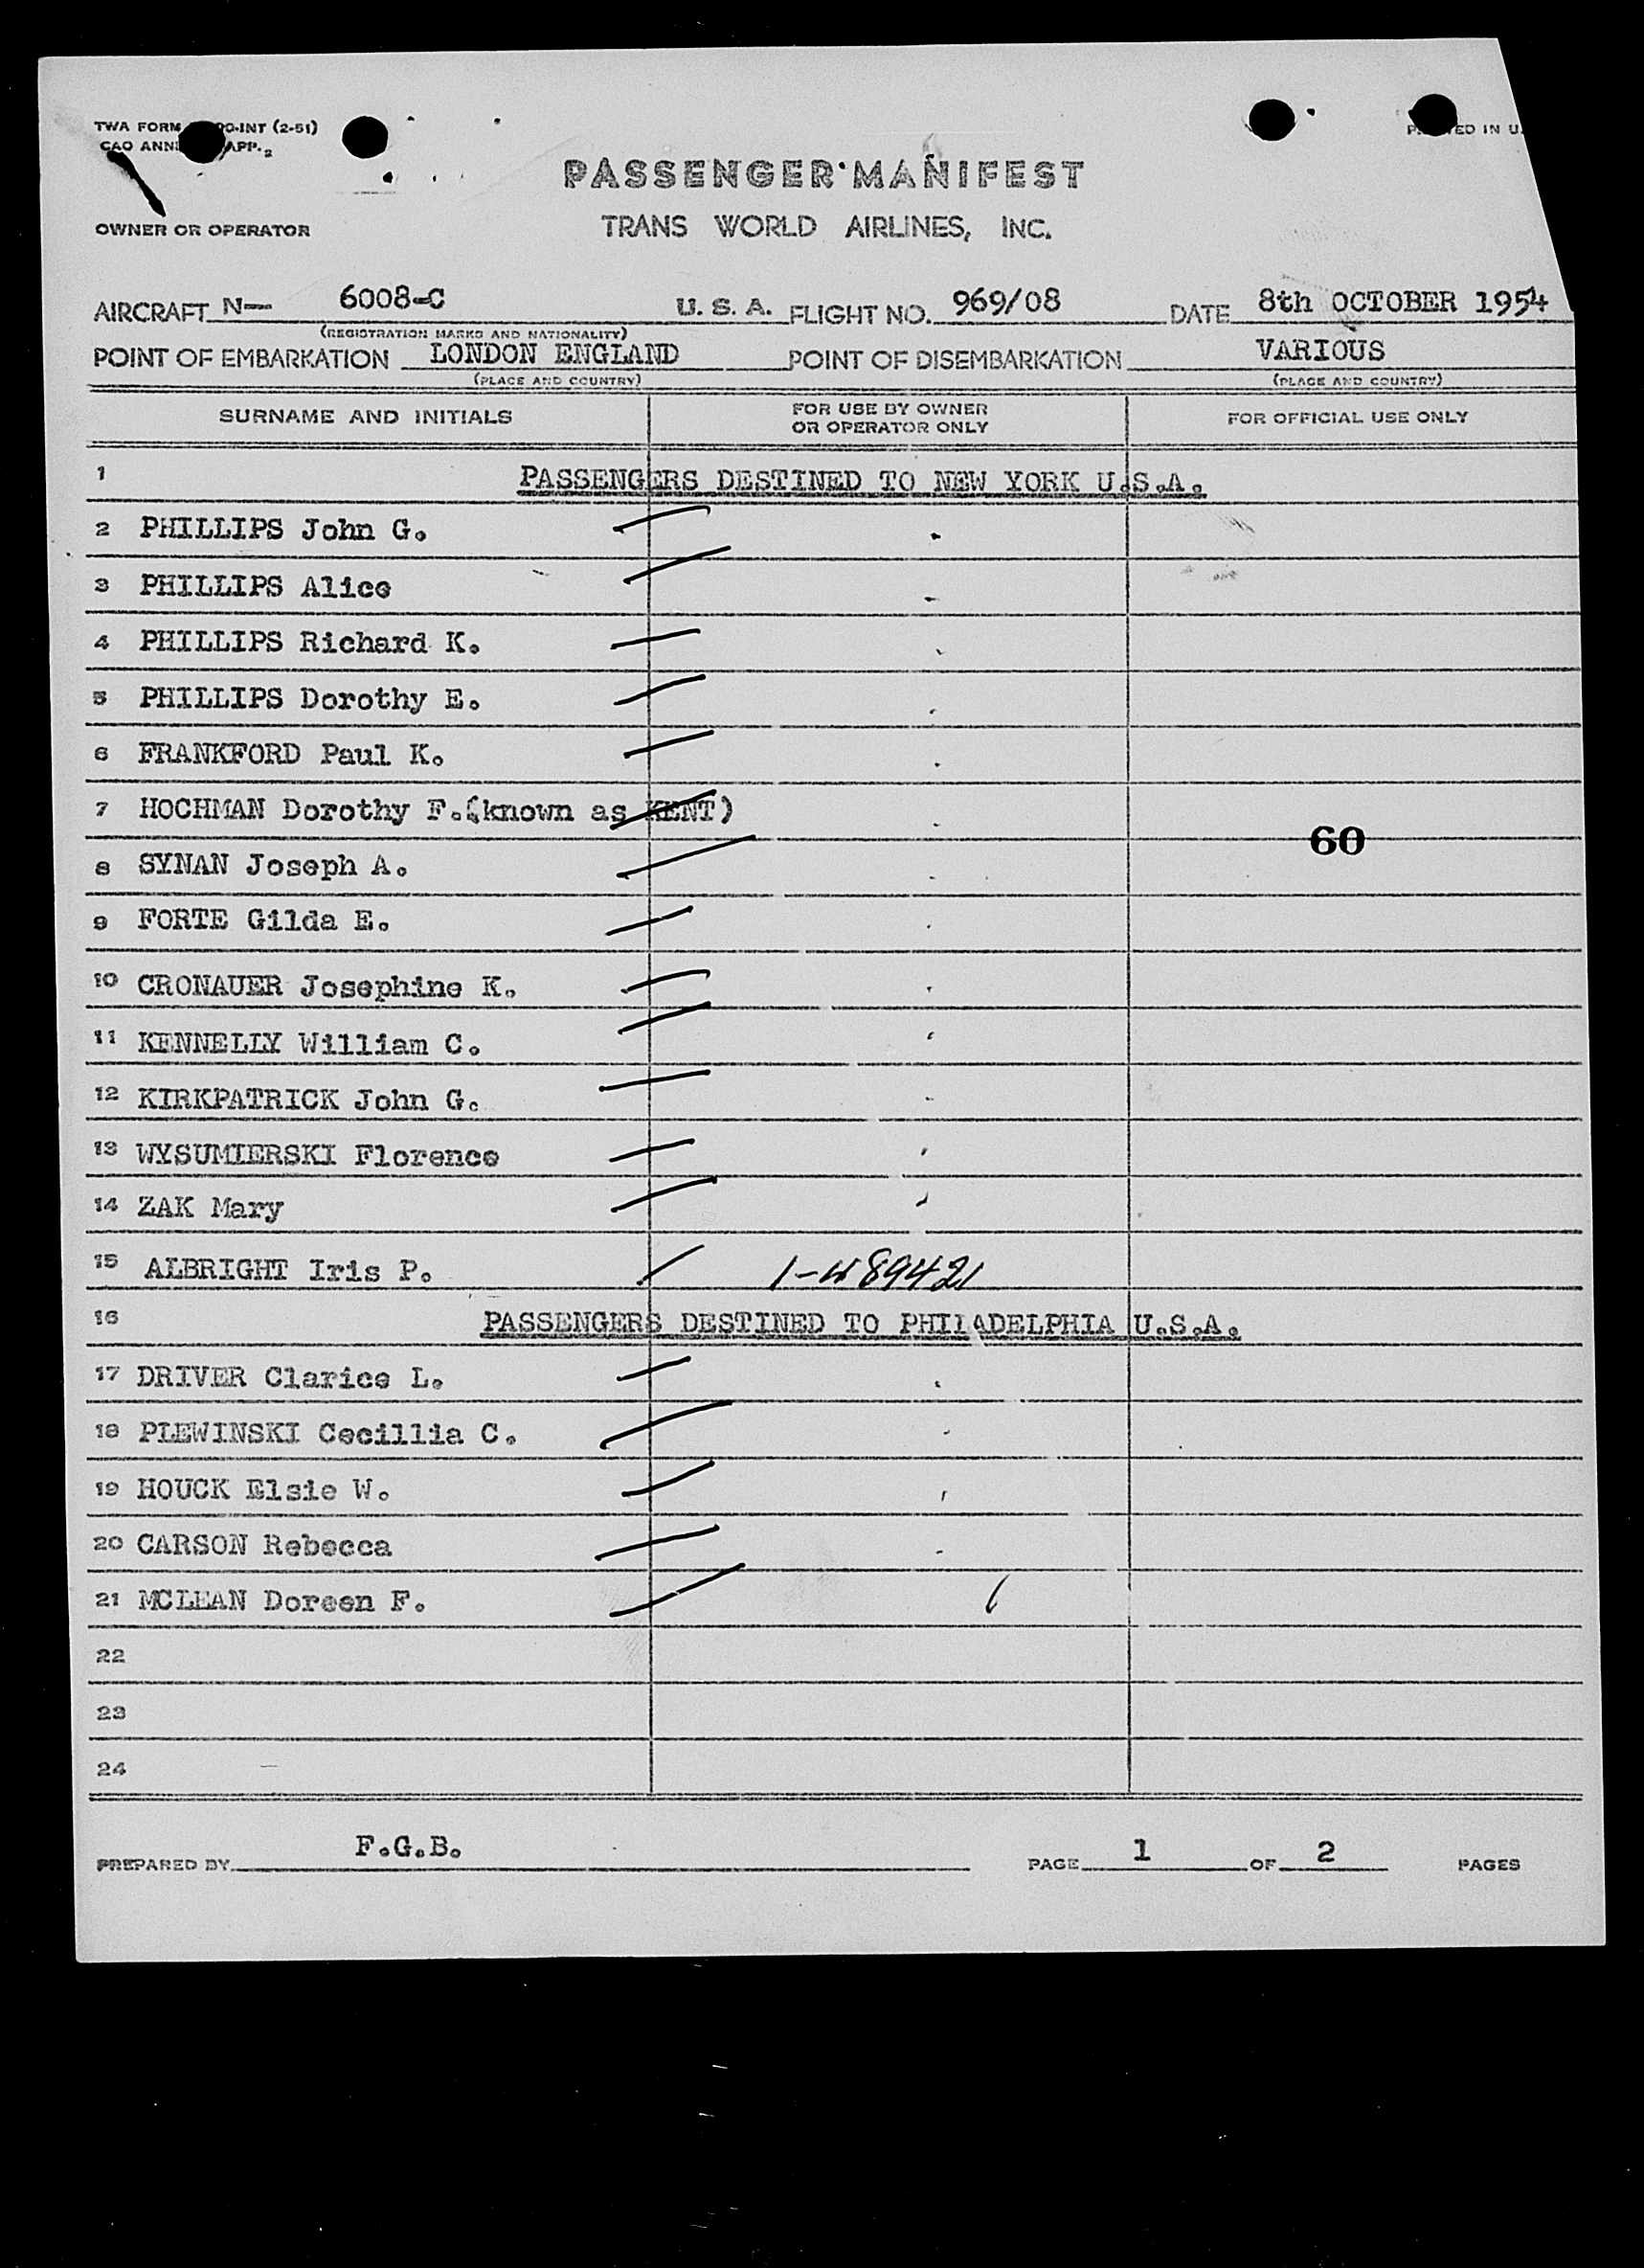 TWA FORM INT (2-51)
CAO APP. 2
PASSENGER MANIFEST
OWNER OR OPERATOR
TRANS WORLD AIRLINES, INC.
AIRCRAFT N— 6008-C U. S. A. FLIGHT NO. 969/08 DATE 8th OCTOBER 1954
(REGISTRATION MARKS AND NATIONALITY)
POINT OF EMBARKATION LONDON ENGLAND POINT OF DISEMBARKATION VARIOUS
(PLACE AND COUNTRY) (PLACE AND COUNTRY)
SURNAME AND INITIALS FOR USE BY OWNER OR OPERATOR ONLY FOR OFFICIAL USE ONLY
1 PASSENGERS DESTINED TO NEW YORK U.S.A.
2 PHILLIPS John G.
3 PHILLIPS Alice
4 PHILLIPS Richard K.
5 PHILLIPS Dorothy E.
6 FRANKFORD Paul K.
7 HOCHMAN Dorothy F.(known as KENT)
60
8 SYNAN Joseph A.
9 FORTE Gilda E.
10 CRONAUER Josephine K.
11 KENNELLY William C.
12 KIRKPATRICK John G.
13 WYSUMIERSKI Florence
14 ZAK Mary
15 ALBRIGHT Iris P. 
16 PASSENGERS DESTINED TO PHILADELPHIA U.S.A.
17 DRIVER Clarice L.
18 PLEWINSKI Cecillia C.
19 HOUCK Elsie W.
20 CARSON Rebecca
21 MCLEAN Doreen F.
22
23
24
PREPARED BY F.G.B. PAGE 1 OF 2 PAGES